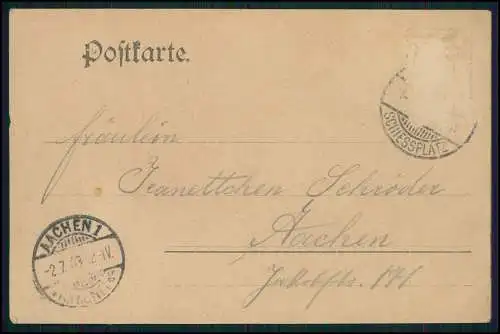 Postkarte.
SCHIESSPLATZ
Fräulein
Jeanettchen Schröder
Aachen
Jakobstr. 176
AACHEN 1
-2.7.03